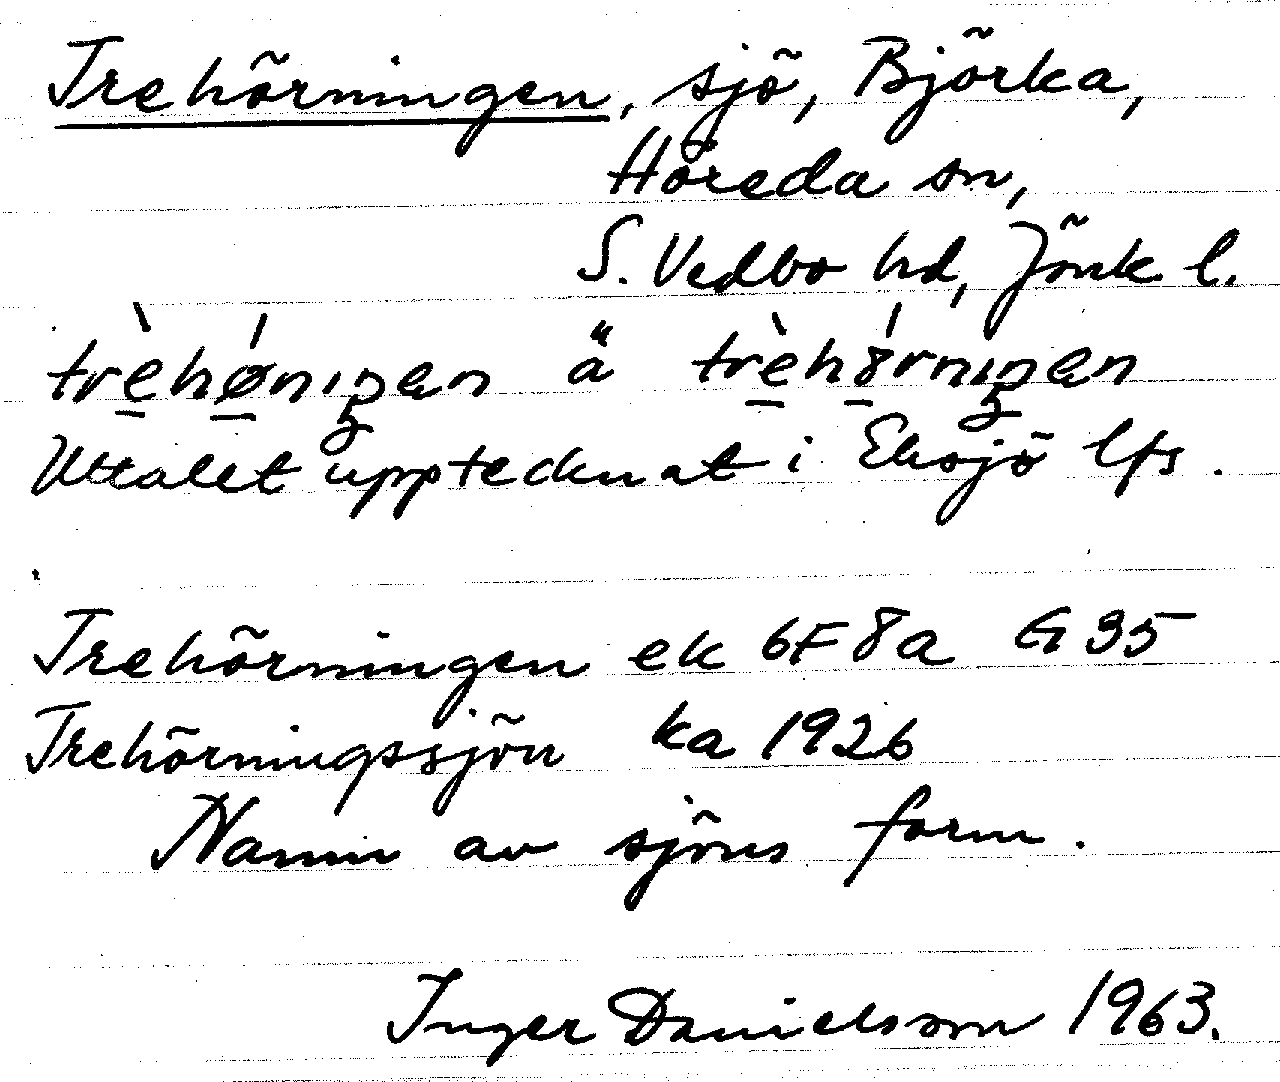 Trehörningen, sjö, Björka,
Höreda sn,
S. Vedbo hd, Jönk. l.
trèhø̀niŋen å̈ trèhörniŋen
Uttalet upptecknat i Eksjö lfs.
Trehörningen ek 6F8a G35
Trehörningssjön ka 1926
Namn av sjöns form.
Inger Danielsson 1963.